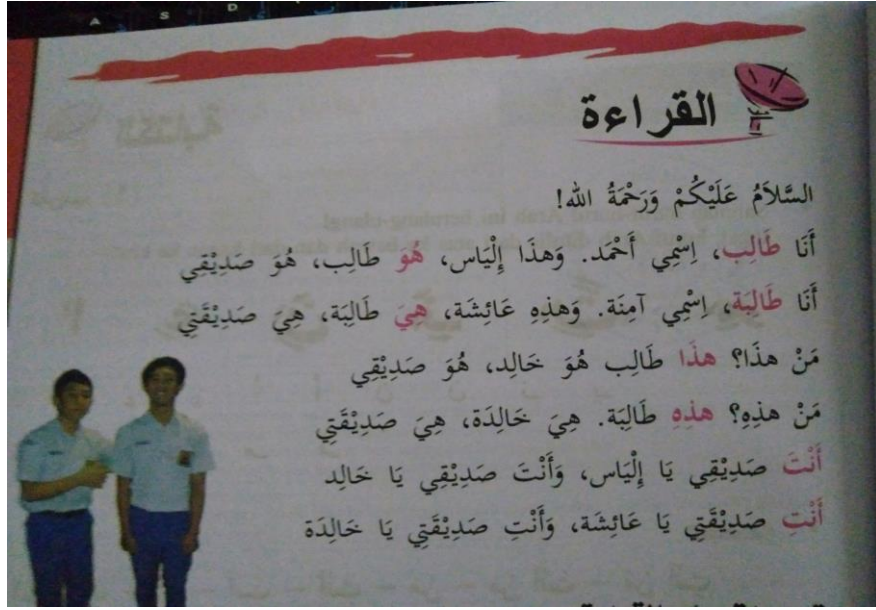 A S D
القراءة
السَّلاَمُ عَلَيْكُمْ وَرَحْمَةُ الله!
أَنَا طَالِب، اِسْمِي أَحْمَد. وَهذَا إِلْيَاس، هُوَ طَالِب، هُوَ صَدِيْقِي
أَنَا طَالِبَة، اِسْمِي آمِنَة. وَهذِهِ عَائِشَة، هِيَ طَالِبَة، هِيَ صَدِيْقَتِي
مَنْ هذَا؟ هذَا طَالِب هُوَ خَالِد، هُوَ صَدِيْقِي
مَنْ هذِهِ؟ هذِهِ طَالِبَة. هِيَ خَالِدَة، هِيَ صَدِيْقَتِي
أَنْتَ صَدِيْقِي يَا إِلْيَاس، وَأَنْتَ صَدِيْقِي يَا خَالِد
أَنْتِ صَدِيْقَتِي يَا عَائِشَة، وَأَنْتِ صَدِيْقَتِي يَا خَالِدَة